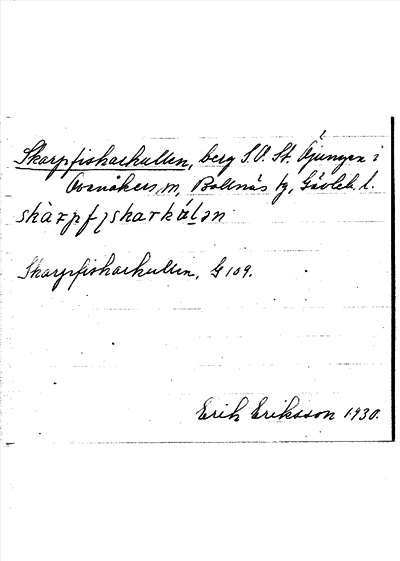 Skarpfiskarkullen, berg S.O. St. Öjungen i
Ovanåkers m, Bollnäs tg, Gävleb. l.
skàrpfɩskarkúlən
Skarpfiskarkullen, G 109.
Erik Eriksson 1930.